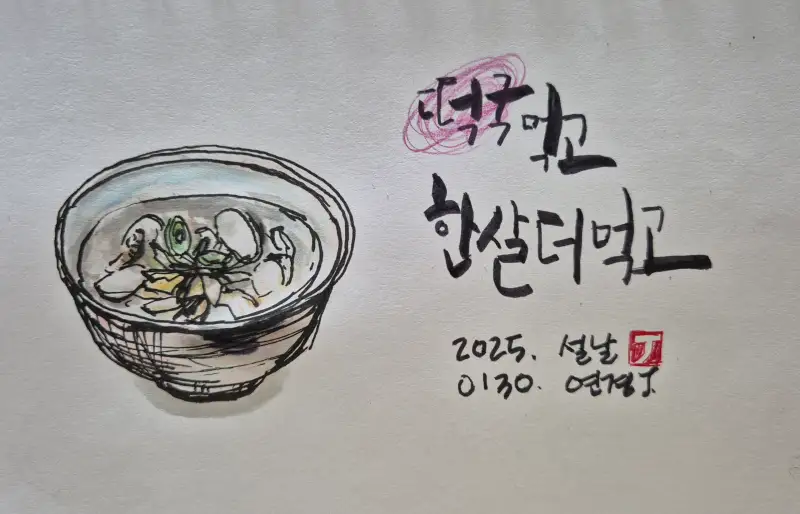 떡국먹고
한살더먹고
2025. 설날 J
0130. 연경J.